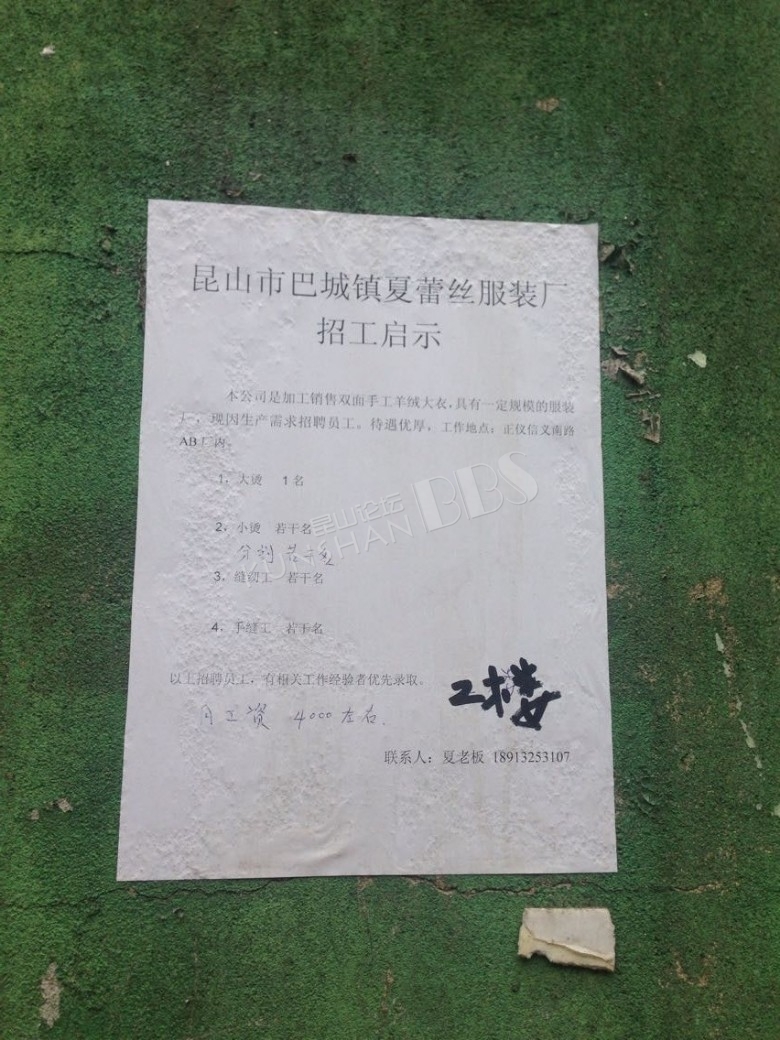 昆山市巴城镇夏蕾丝服装厂
招工启示
本公司是加工销售双面手工羊绒大衣,具有一定规模的服装
厂，现因生产需求招聘员工。待遇优厚，工作地点：正仪信义南路
AB厂内。
1，大烫 1名
2，小烫 若干名
分割 若干名
3，缝纫工 若干名
4，手缝工 若干名
以上招聘员工，有相关工作经验者优先录取。
二楼
月工资 4000左右.
联系人：夏老板 18913253107
昆山论坛
KUNSHAN BBS